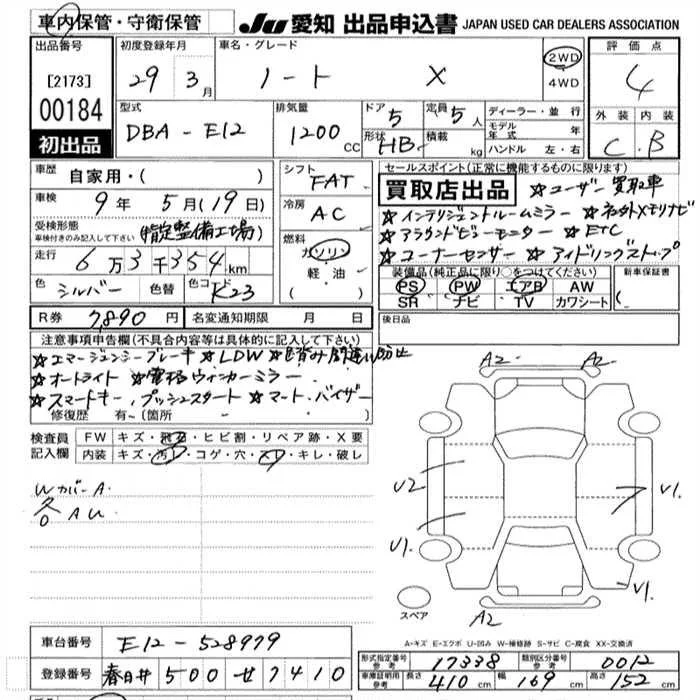 車内保管・守衛保管 JU 愛知 出品申込書 JAPAN USED CAR DEALERS ASSOCIATION
出品番号 初度登録年月 車名・グレード 評価点
[2173] 29 3月 ノート X 2WD 4WD 4
00184 型式 排気量 ドア 5 定員 5人 ディーラー・並行 外装 内装
DBA-E12 1200cc 形状 HB 積載 kg モデル年式 年 C B
初出品 ハンドル 左・右
車歴 自家用・( ) シフト FAT セールスポイント(正常に機能するものに限ります)
車検 9年 5月(19日) 冷房 AC 買取店出品 ☆ユーザー買取車
受検形態 車検付きのみ記入して下さい (指定整備工場) ☆インテリジェントルームミラー ☆社外メモリナビ
燃料 ガソリン 軽油 ☆アラウンドビューモニター ☆ETC
走行 6万3千354km ☆コーナーセンサー ☆アイドリングストップ
色 シルバー 色替 色コード K23 装備品(純正品に限り○をつけてください) 新車保証書
PS PW エアB AW
SR ナビ TV カワシート
R券 7,890円 名変通知期限 月 日 後日品
注意事項申告欄(不具合内容等は具体的に記入して下さい)
☆エマージェンシーブレーキ ☆LDW ☆踏み間違い防止
☆オートライト ☆電格ウィンカーミラー
☆スマートキー,プッシュスタート ☆マット・バイザー
修復歴 有~(箇所
検査員記入欄 FW キズ・飛石・ヒビ割・リペア跡・X要
内装 キズ・汚レ・コゲ・穴・スレ・キレ・破レ
WカバーA
各AU
A2 A2
U2 V1
V1
V1
A2
スペア
A-キズ E-エクボ U-凹み W-補修跡 S-サビ C-腐食 XX-交換済
車台番号 E12-528979
登録番号 春日井 500 せ 7410
形式指定番号 参考 17338 類別区分番号 参考 0012
車庫証明用 参考 長さ 410cm 幅 169cm 高さ 152cm